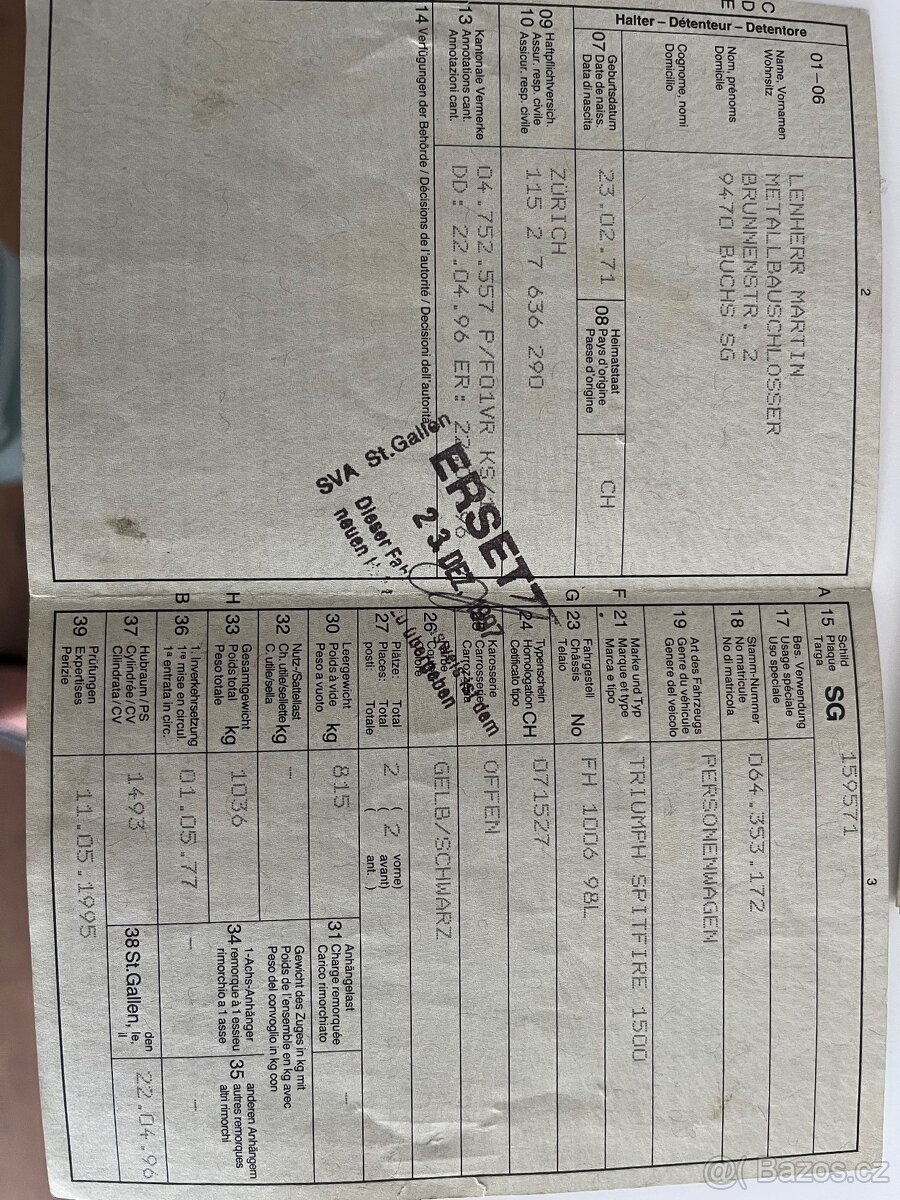 2
C
D
E
Halter – Détenteur – Detentore
01–06
Name, Vornamen
Wohnsitz
Nom, prénoms
Domicile
Cognome, nomi
Domicilio
LENHERR MARTIN
METALLBAUSCHLOSSER
BRUNNENSTR. 2
9470 BUCHS SG
07 Geburtsdatum
Date de naiss.
Data di nascita
23.02.71
08 Heimatstaat
Pays d'origine
Paese d'origine
CH
09 Haftpflichtversich.
10 Assur. resp. civile
Assicur. resp. civile
ZÜRICH
115 2 7 636 290
13 Kantonale Vermerke
Annotations cant.
Annotazioni cant.
04.752.557 P/F01VR KS
DD: 22.04.96 ER:
14 Verfügungen der Behörde / Décisions de l'autorité / Decisioni dell'autorità
SVA St.Gallen
ERSETZT
23. DEZ. 1997
Dieser
neuen
übergeben
3
A 15 Schild
Plaque
Targa
SG
159571
17 Bes. Verwendung
Usage spéciale
Uso speciale
18 Stamm-Nummer
No matricule
No di matricola
064.353.172
19 Art des Fahrzeugs
Genre du véhicule
Genere del veicolo
PERSONENWAGEN
F 21 Marke und Typ
Marque et type
Marca e tipo
TRIUMPH SPITFIRE 1500
G 23 Fahrgestell
Châssis No
Telaio
FH 1006 98L
24 Typenschein
Homologation CH
Certificato tipo
071527
Karosserie
Carrosserie
Carrozzeria
OFFEN
26
GELB/SCHWARZ
27 Plätze: Total
Places: Total
posti: Totale
2 ( 2 vorne)
avant)
ant. )
30 Leergewicht
Poids à vide kg
Peso a vuoto
815
31 Anhängelast
Charge remorquée
Carico rimorchiato
–
32 Nutz-/Sattellast
Ch. utile/sellette kg
C. utile/sella
–
Gewicht des Zuges in kg mit
Poids de l'ensemble en kg avec
Peso del convoglio in kg con
H 33 Gesamtgewicht
Poids total kg
Peso totale
1036
34 1-Achs-Anhänger
remorque à 1 essieu
rimorchio a 1 asse
35 anderen Anhängern
autres remorques
altri rimorchi
B 36 1. Inverkehrsetzung
1re mise en circul.
1a entrata in circ.
01.05.77
–
–
37 Hubraum / PS
Cylindrée / CV
Cilindrata / CV
1493
38 St.Gallen, den
le,
il
22.04.96
39 Prüfungen
Expertises
Perizie
11.05.1995
Bazos.cz